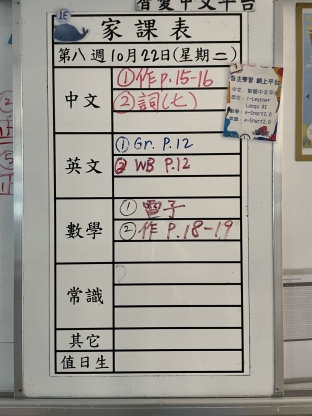 智愛中文平台
1E
家課表
第八週10月22日(星期二)
中文
①作P.15-16
②詞(七)
英文
① Gr. P.12
② WB P.12
數學
① 電子
② 作 P.18-19
常識
其它
值日生
自主學習 網上平台
中文: 智愛中文平台
英文: i-Learner
數學: e-Smart2.0